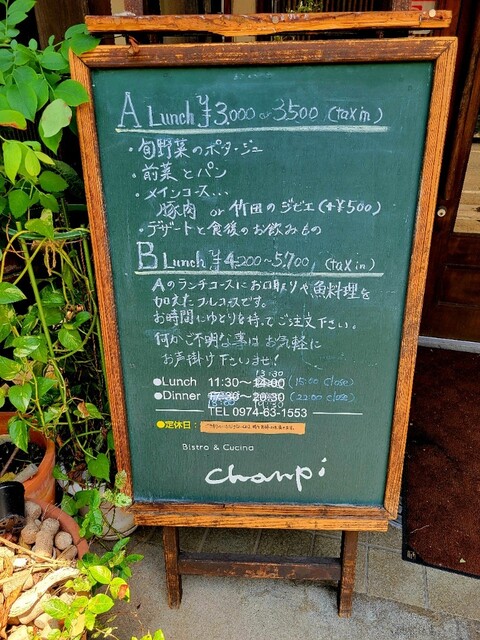 A Lunch ¥3,000 or 3500 (tax in)
・旬野菜のポタージュ
・前菜とパン
・メインコース…
豚肉 or 竹田のジビエ(+¥500)
・デザートと食後のお飲みもの
B Lunch ¥4,200〜5,700 (tax in)
Aのランチコースにお口取りや魚料理を
加えたフルコースです。
お時間にゆとりを持ってご注文下さい。
何かご不明な事はお気軽に
お声掛け下さいませ!
13:30
●Lunch 11:30〜14:00 (15:00 close)
●Dinner 17:30〜20:30 (22:00 close)
18:00 19:30
TEL 0974-63-1553
●定休日:
Bistro & Cucina
chanpi